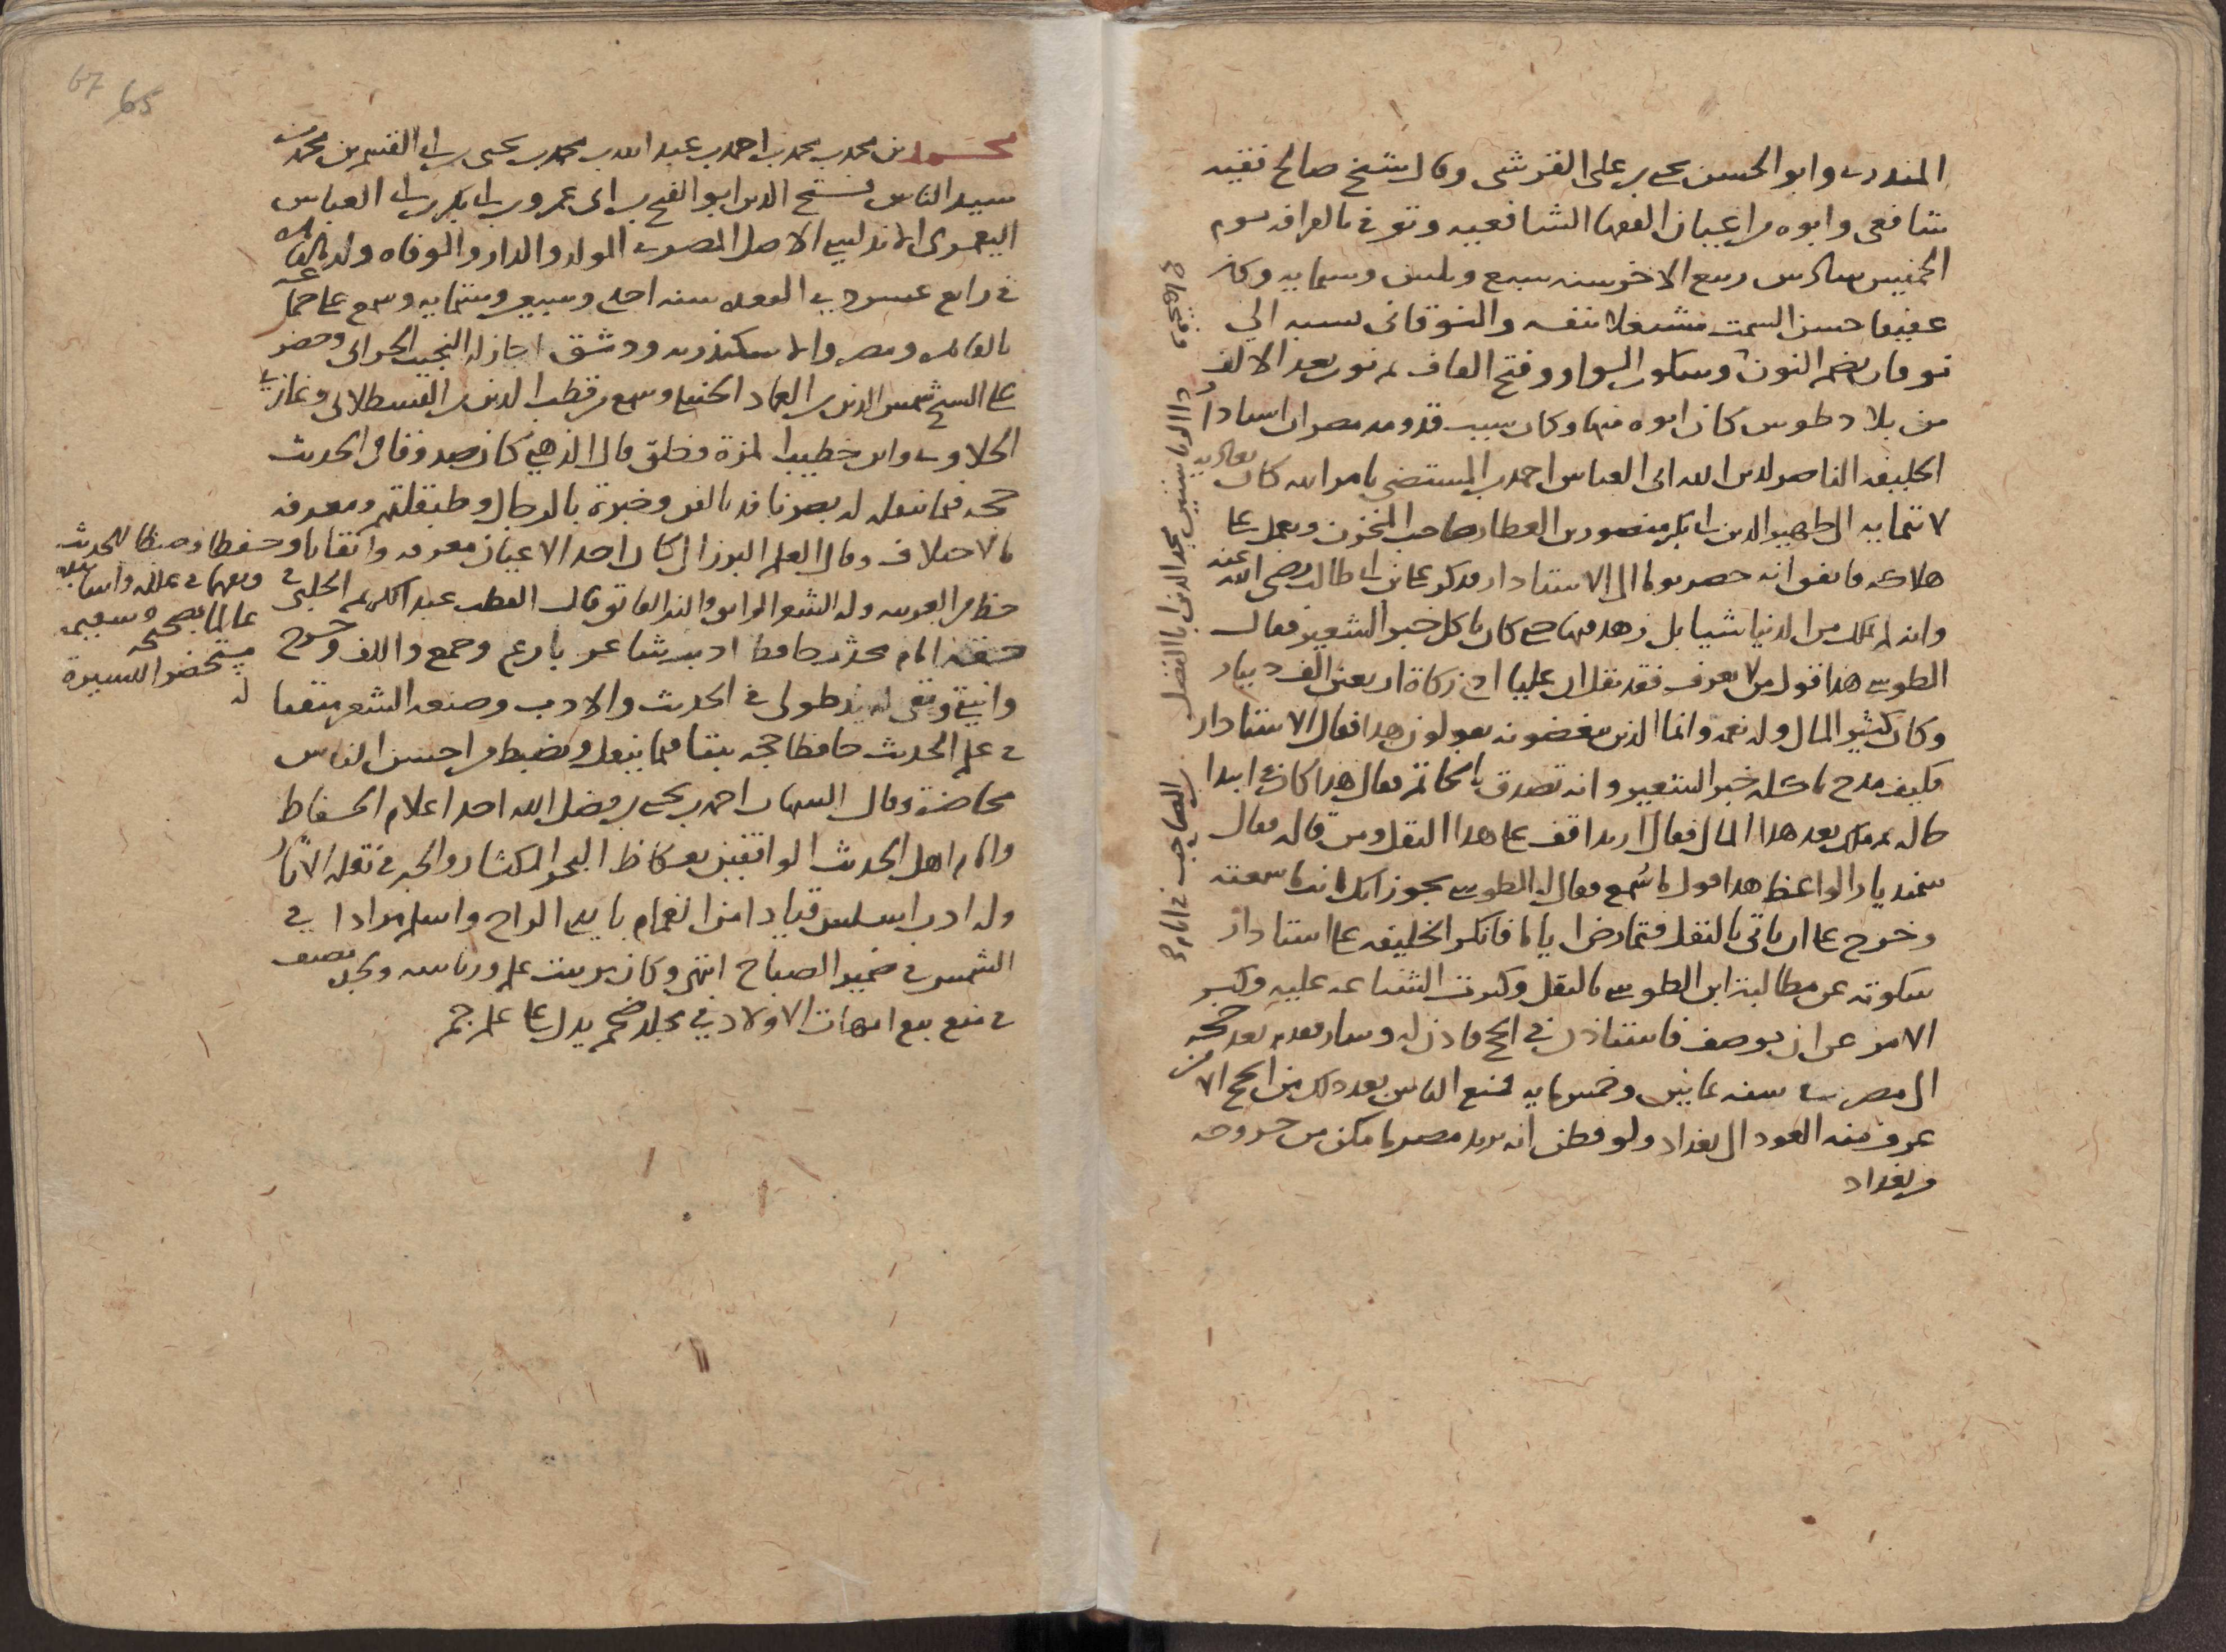 المنذري وابو الحسن يحيى بن على القرشى وقال شيخ صالح فقيه
شافعى وابوه من اعيان الفقها الشافعيه وتوفى بالقرافه يوم
الخميس سادس ربيع الاخر سنه سبع وثلثين وستمايه وكان
عفيفا حسن السمت مشتغلا بنفسه والنوقانى نسبه الى
نوقان بضم النون وسكون الواو وفتح القاف ثم نون بعد الالف
من بلاد طوس كان ابوه منها وكان سبب قدومه مصر ان استادار
الخليفه الناصر لدين الله ابى العباس احمد بن المستضى بامر الله كان يعاديه
لانتمايه الى ظهير الدين ابى بكر منصور بن العطار صاحب المخزن ويعمل على
هلاكه فاتفق انه حضر يوما الى الاستادار فذكر على بن ابى طالب رضى الله عنه
وانه لم يملك من الدنيا شيا بل زهد فيها حتى كان ياكل خبز الشعير فقال
الطوسى هذا قول من لا يعرف فقد نقل ان عليا ادى زكاة اربعين الف دينار
وكان كثير المال وله نعمه وانما الذين يبغضونه يقولون هذا فقال الاستادار
فكيف مدح باكله خبز الشعير وانه تصدق بالخاتم فقال هذا كان فى ابتدا
حاله ثم ملك بعد هذا المال فقال اريد اقف على هذا النقل ومن قاله فقال
الواعظ هذا قول ما سُمع فقال له الطوسى يجوز انك انت ما سمعته
وخرج على ان ياتى بالنقل فتمارض اياما فانكر الخليفه على استادار
سكوته عن مطالبة ابن الطوسى بالنقل وكثرت الشناعه عليه وكبر
الامر عن ان يوصف فاستاذن فى الحج فاذن له وسار فقدم بعد حجه
الى مصر فى سنه ثمانين وخمسمايه فمنع الناس بعد ذلك من الحج الا من
عرف منه العود الى بغداد ولو فطن انه يريد مصر ما مكن من خروجه
من بغداد
محمد بن محمد بن محمد بن احمد بن عبد الله بن محمد بن يحيى بن ابى القسم بن محمد بن
سيد الناس فتح الدين ابو الفتح بن ابى عمرو بن ابى بكر بن ابى العباس
اليعمرى الاندلسى الاصل المصرى المولد والدار والوفاه ولد بالقاهره
فى رابع عشر ذى القعده سنه احدى وسبعين وستمايه وسمع على جماعه
بالقاهره ومصر والاسكندريه ودمشق اجاز له النجيب الحرانى وحضر
على الشيخ شمس الدين بن العماد الحنبلى وسمع من قطب الدين بن القسطلانى وغازى
الحلاوى وابن خطيب المزة وخلق قال الذهبى كان صدوقا فى الحديث
حجه فيما ينقله له بصر نافذ بالفن وخبرة بالرجال وطبقاتهم ومعرفه
بالاختلاف وقال العلم البرزالى كان احد الاعيان معرفه واتقانا وحفظا وضبطا للحديث
وتفهما فى علله واسانيده
عالما بصحيحه وسقيمه
مستحضرا للسيرة
له
حظ من العربيه وله الشعر الرايق والنثر الفايق وقال القطب عبد الكريم الحلبى فى
حقه امام محدث حافظ اديب شاعر بارع وجمع والف وخرج
وانتقى وبقى له يد طولى فى الحديث والادب وصنعه الشعر متقنا
فى علم الحديث حافظا حجه ثبتا فيما ينقل ويضبط من احسن الناس
محاضرة وقال الشهاب احمد بن يحيى بن فضل الله احد اعلام الحفاظ
وامام اهل الحديث الواقفين بعكاظ البحر المكثار والحبر فى نقله الاثار
وله ادب اسلس قيادا من الغمام بايدى الرياح واسلم مرادا فى
الشمس فى ضمير الصباح انتهى وكان من بيت علم ورياسه ولجده تصنيف
فى منع بيع امهات الاولاد فى مجلد ضخم يدل على علم جم